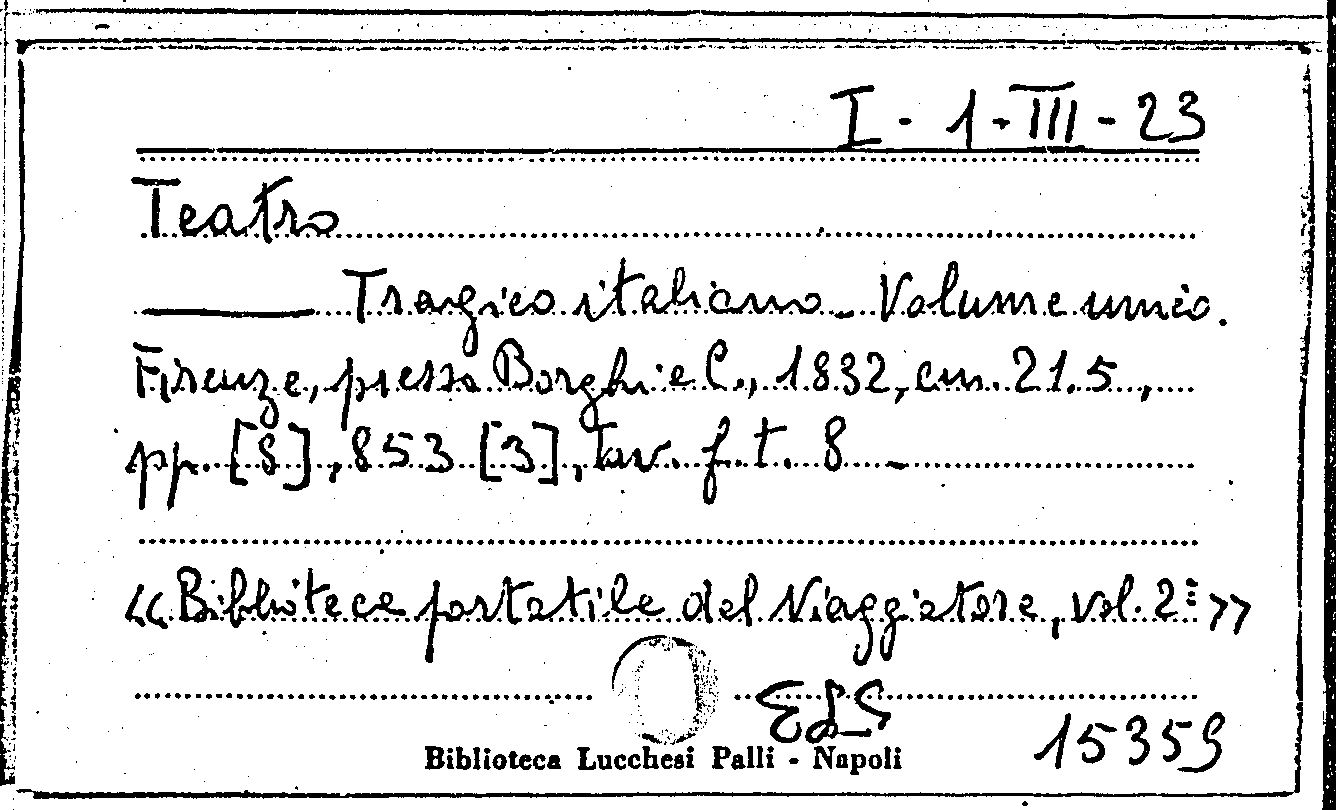 I - 1 - III - 23
Teatro
——— Tragico italiano - Volume unico.
Firenze, presso Borghi e C., 1832, cm. 21.5,
pp. [8], 853 [3], Tav. f. t. 8 -
«Biblioteca portatile del Viaggiatore, vol. 2º»
Biblioteca Lucchesi Palli - Napoli
15359